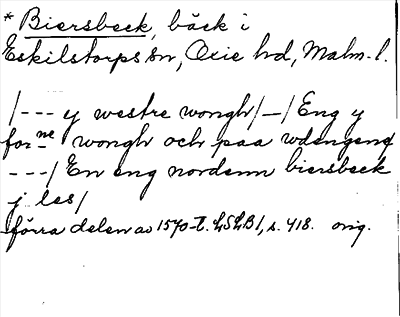 * Biersbeck, bäck i
Eskilstorps sn, Oxie hd, Malm. l.
/--- y westre wongh/—/ Eng y
forne wongh och paa wdengenn
---/ En eng nordenn biersbeck
j les/
förra delen av 1570-t. LSLB1, s. 418. orig.